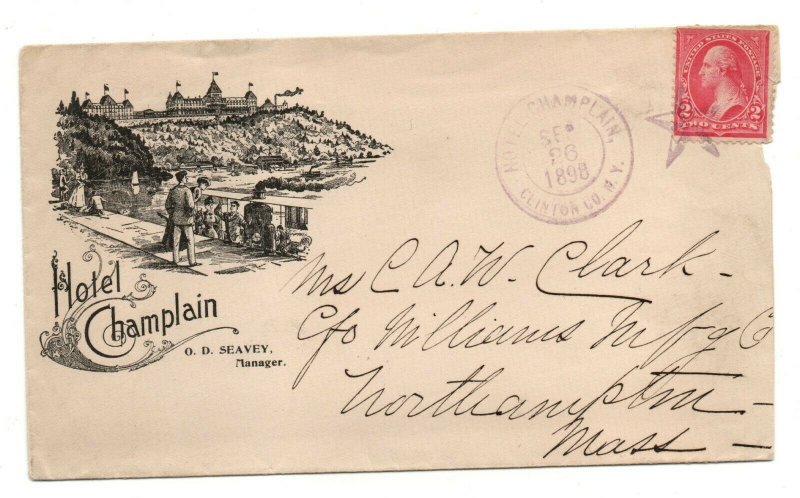 Hotel
Champlain
O. D. SEAVEY,
Manager.
HOTEL CHAMPLAIN,
SEP
26
1898
CLINTON CO. N. Y.
UNITED STATES POSTAGE
2 2
TWO CENTS
Ms C. A. W. Clark -
C/o Williams Mfg Co
Northampton -
Mass -